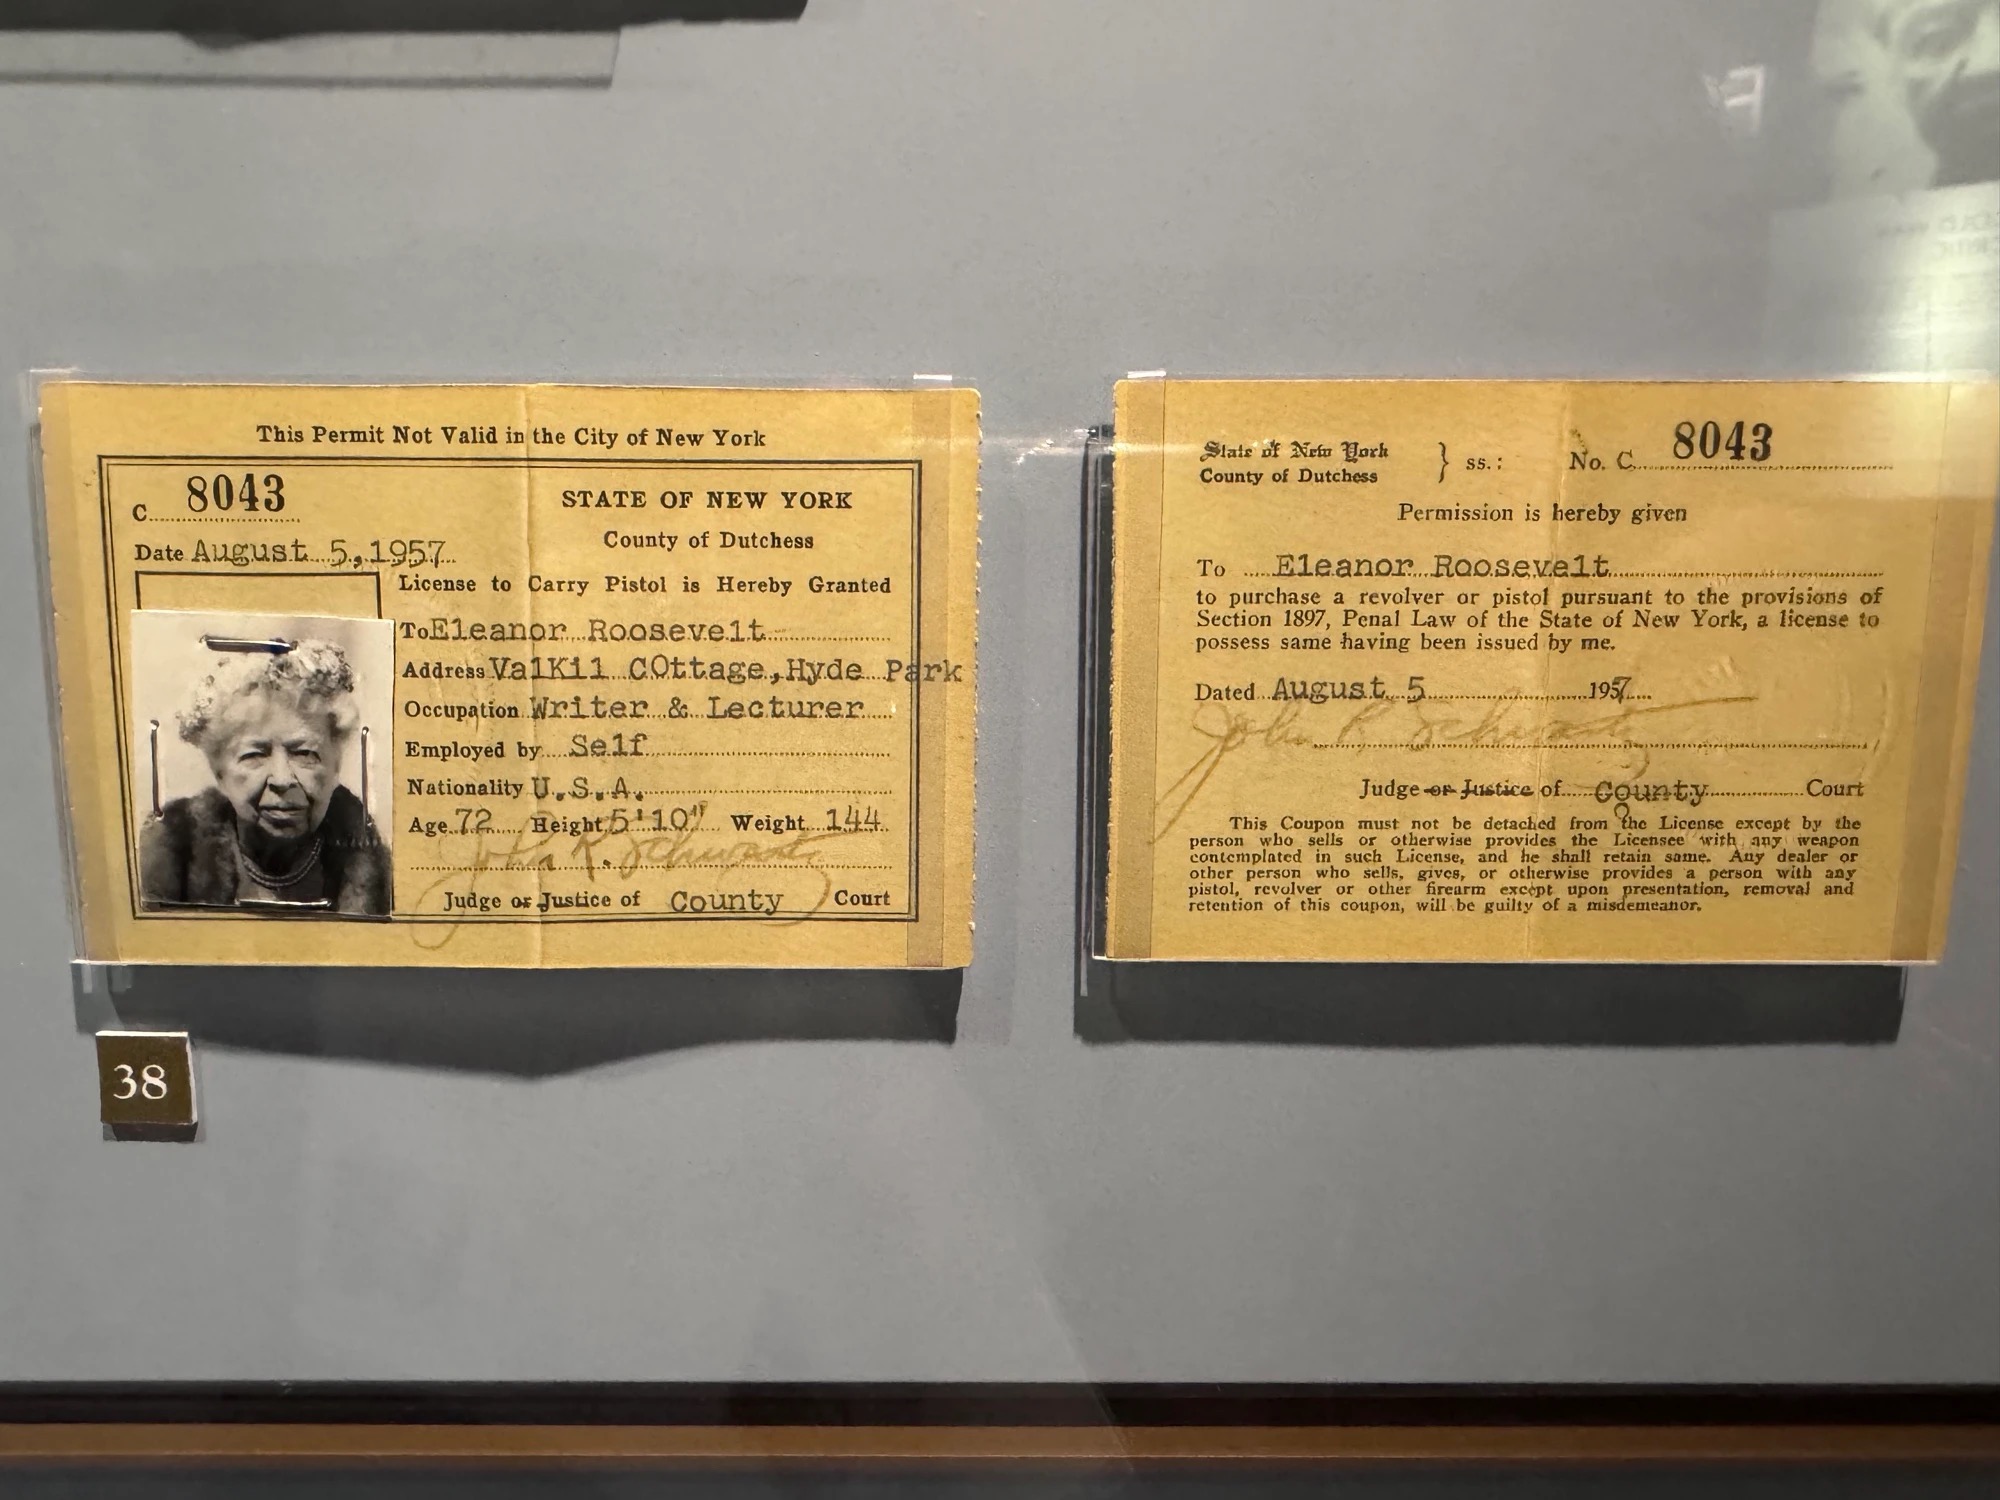 This Permit Not Valid in the City of New York
C 8043
STATE OF NEW YORK
County of Dutchess
Date August 5,1957
License to Carry Pistol is Hereby Granted
To Eleanor Roosevelt
Address ValKil COttage,Hyde Park
Occupation Writer & Lecturer
Employed by Self
Nationality U.S.A.
Age 72 Height 5'10" Weight 144
John R. Schwartz
Judge or Justice of County Court
38
State of New York
County of Dutchess } ss.: No. C 8043
Permission is hereby given
To Eleanor Roosevelt
to purchase a revolver or pistol pursuant to the provisions of
Section 1897, Penal Law of the State of New York, a license to
possess same having been issued by me.
Dated August 5 1957
John R Schwartz
Judge or Justice of County Court
This Coupon must not be detached from the License except by the
person who sells or otherwise provides the Licensee with any weapon
contemplated in such License, and he shall retain same. Any dealer or
other person who sells, gives, or otherwise provides a person with any
pistol, revolver or other firearm except upon presentation, removal and
retention of this coupon, will be guilty of a misdemeanor.